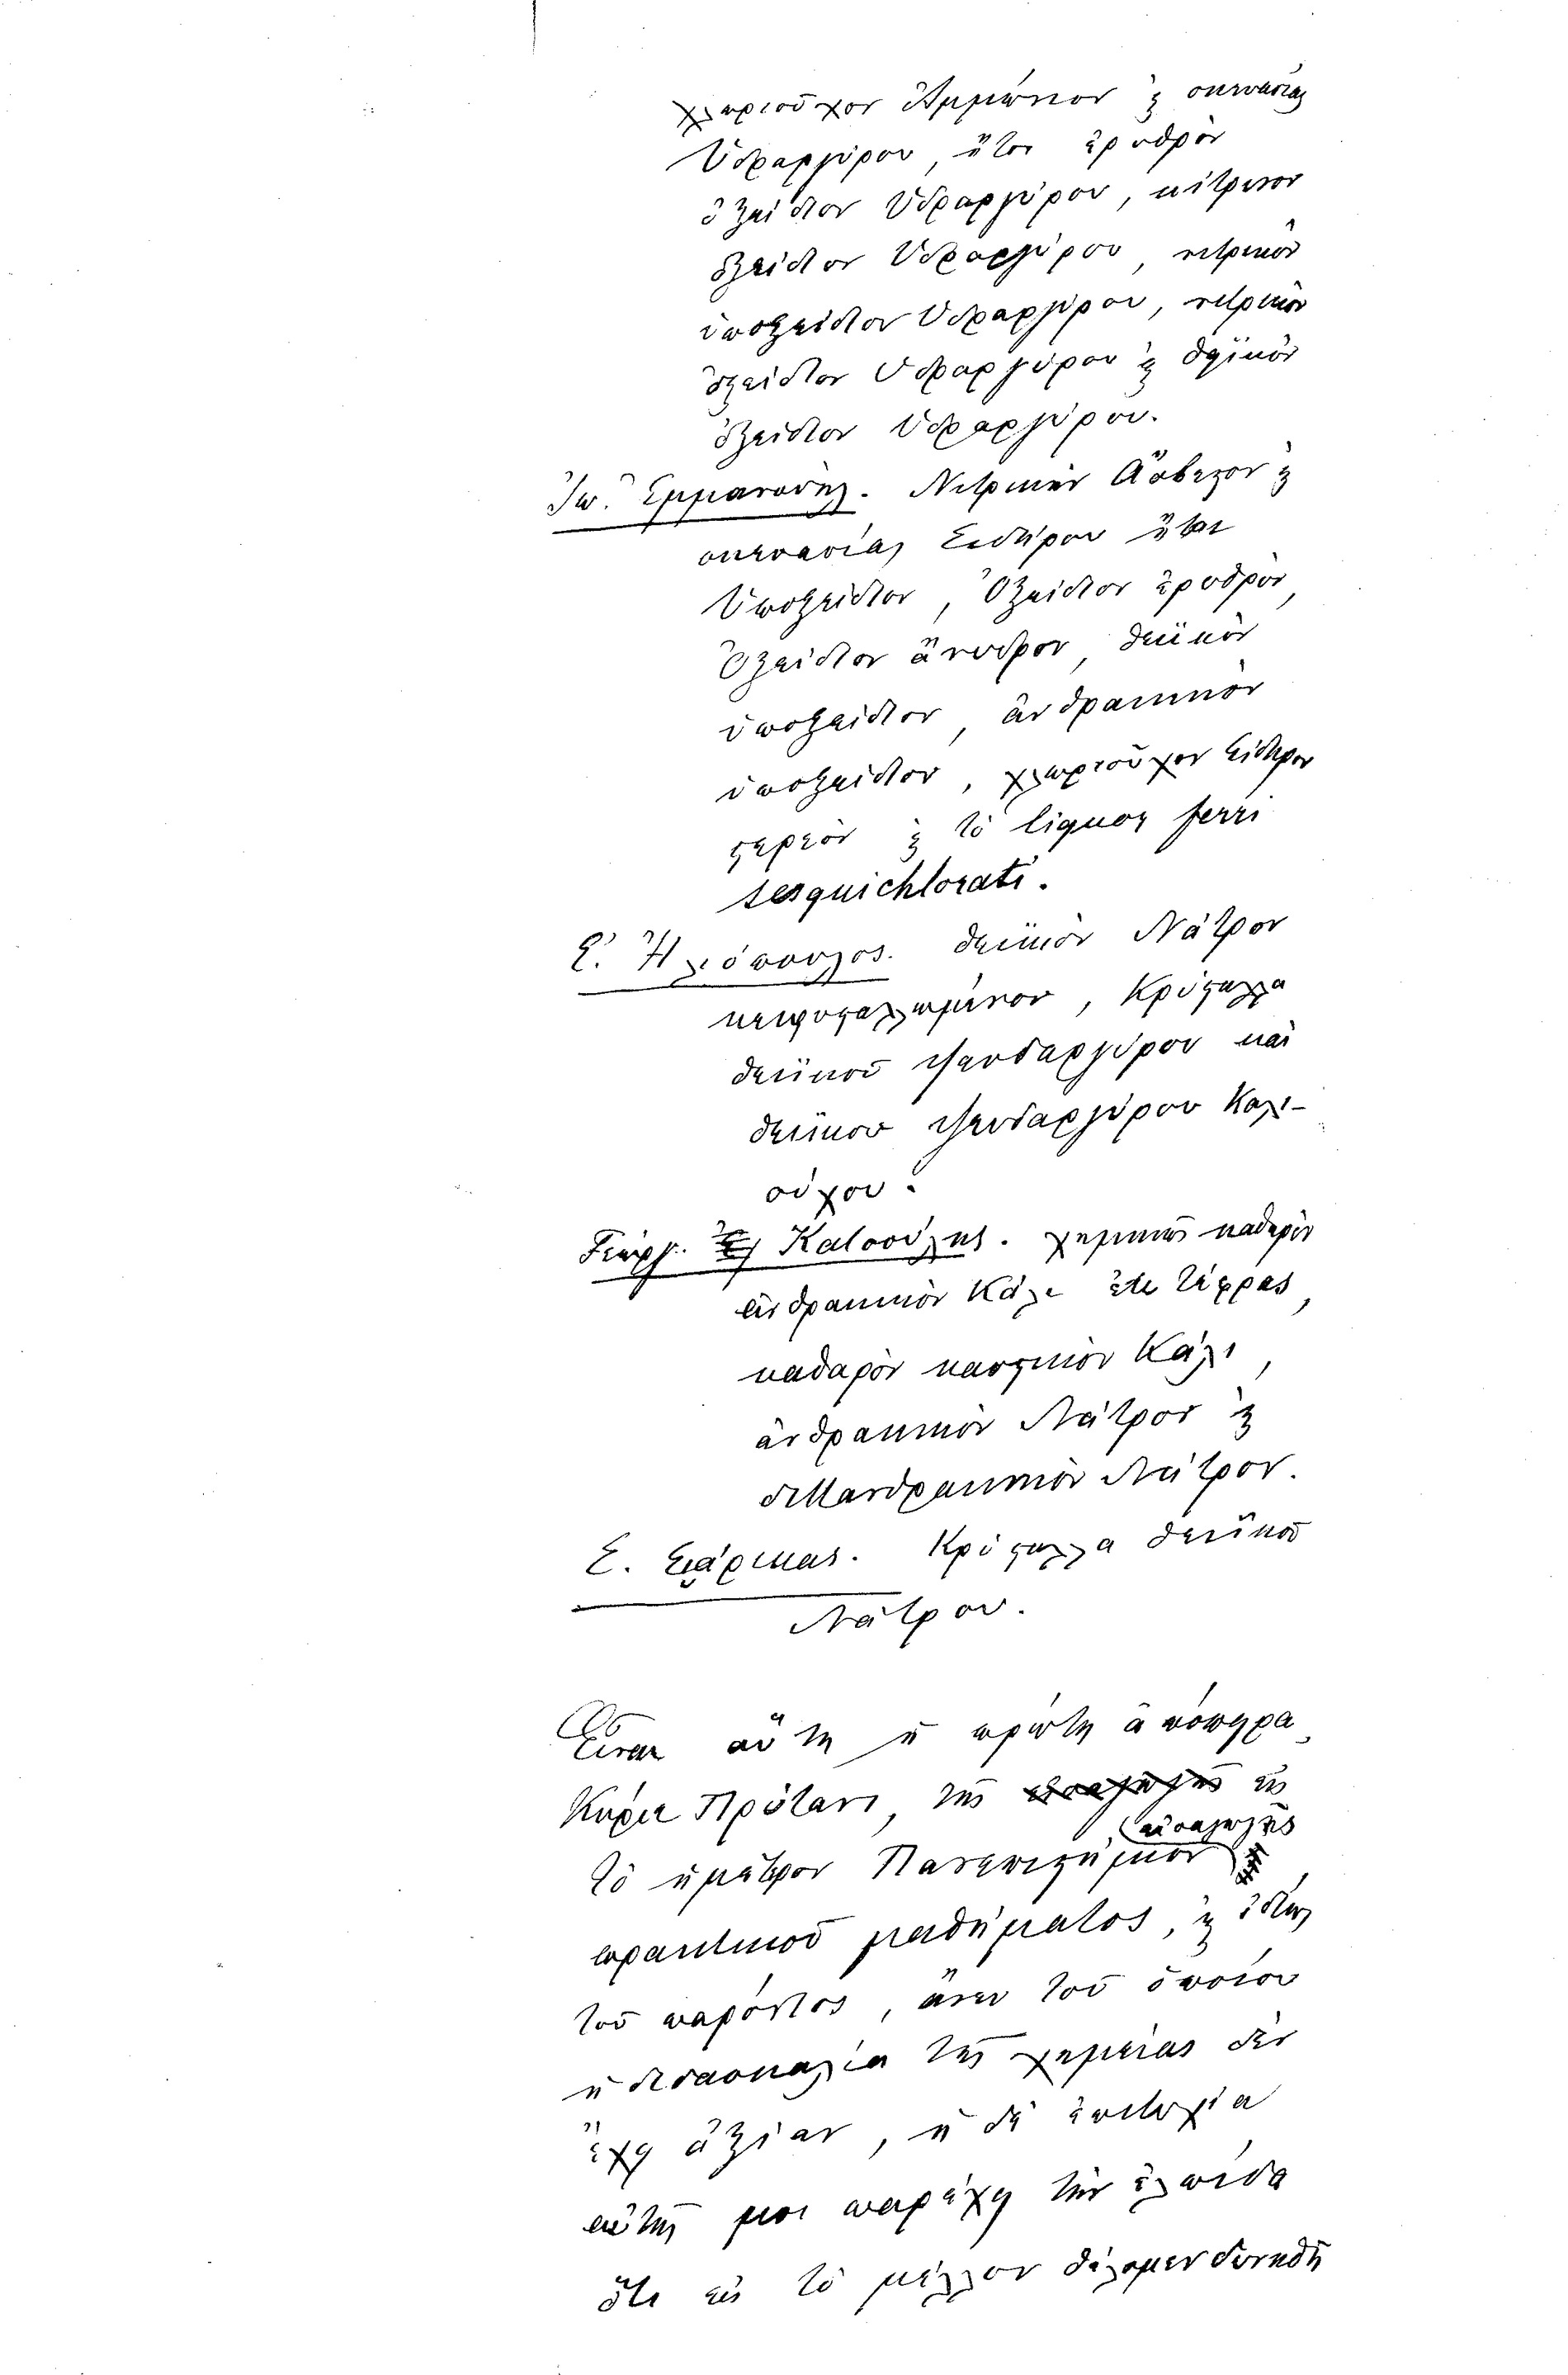 χλωριοῦχον Ἀμμώνιον κ̀ σκευασίας
Ὑδραργύρου, ἤτοι ἐρυθρὸν
ὀξείδιον Ὑδραργύρου, κίτρινον
ὀξείδιον Ὑδραργύρου, νιτρικὸν
ὑποξείδιον Ὑδραργύρου, νιτρικὸν
ὀξείδιον Ὑδραργύρου κ̀ θειϊκὸν
ὀξείδιον Ὑδραργύρου.
Ἰω. Ἐμμανουὴλ. Νιτρικὴν Ἄσβεστον κ̀
σκευασίας Σιδήρου ἤτοι
Ὑποξείδιον, Ὀξείδιον ἐρυθρὸν,
Ὀξείδιον ἄνυδρον, θειϊκὸν
ὑποξείδιον, ἀνθρακικὸν
ὑποξείδιον, χλωριοῦχον Σίδηρον
στερεὸν κ̀ τὸ liquor ferri
sesquichlorati.
Σ. Ἡλιόπουλος. θειϊκὸν Νάτρον
κεκρυσταλλωμένον, Κρύσταλλα
θειϊκοῦ ψευδαργύρου καὶ
θειϊκου ψευδαργύρου Καλι-
ούχου.
Γεώργ. Κατσούλης. χημικῶς καθαρὸν
ἀνθρακικὸν Κάλι ἐκ τέφρας,
καθαρὸν καυστικὸν Κάλι,
ἀνθρακικὸν Νάτρον κ̀
διττανθρακικὸν Νάτρον.
Σ. Κρύσταλλα θειϊκοῦ
Νάτρου.
Εἶναι αὕτη ἡ πρώτη ἀπόπειρα,
Κύριε Πρύτανι, τῆς εἰς
εἰσαγωγῆς
τὸ ἡμέτερον Πανεπιστήμιον
πρακτικοῦ μαθήματος, κ̀ ἰδίως
τοῦ παρόντος, ἄνευ τοῦ ὁποίου
ἡ διδασκαλία τῆς χημείας δὲν
ἔχῃ ἀξίαν, ἡ δὲ ἐπιτυχία
αὐτῆς μοι παρέχῃ τὴν ἐλπίδα
ὅτι εἰς τὸ μέλλον θέλομεν δυνηθῆ